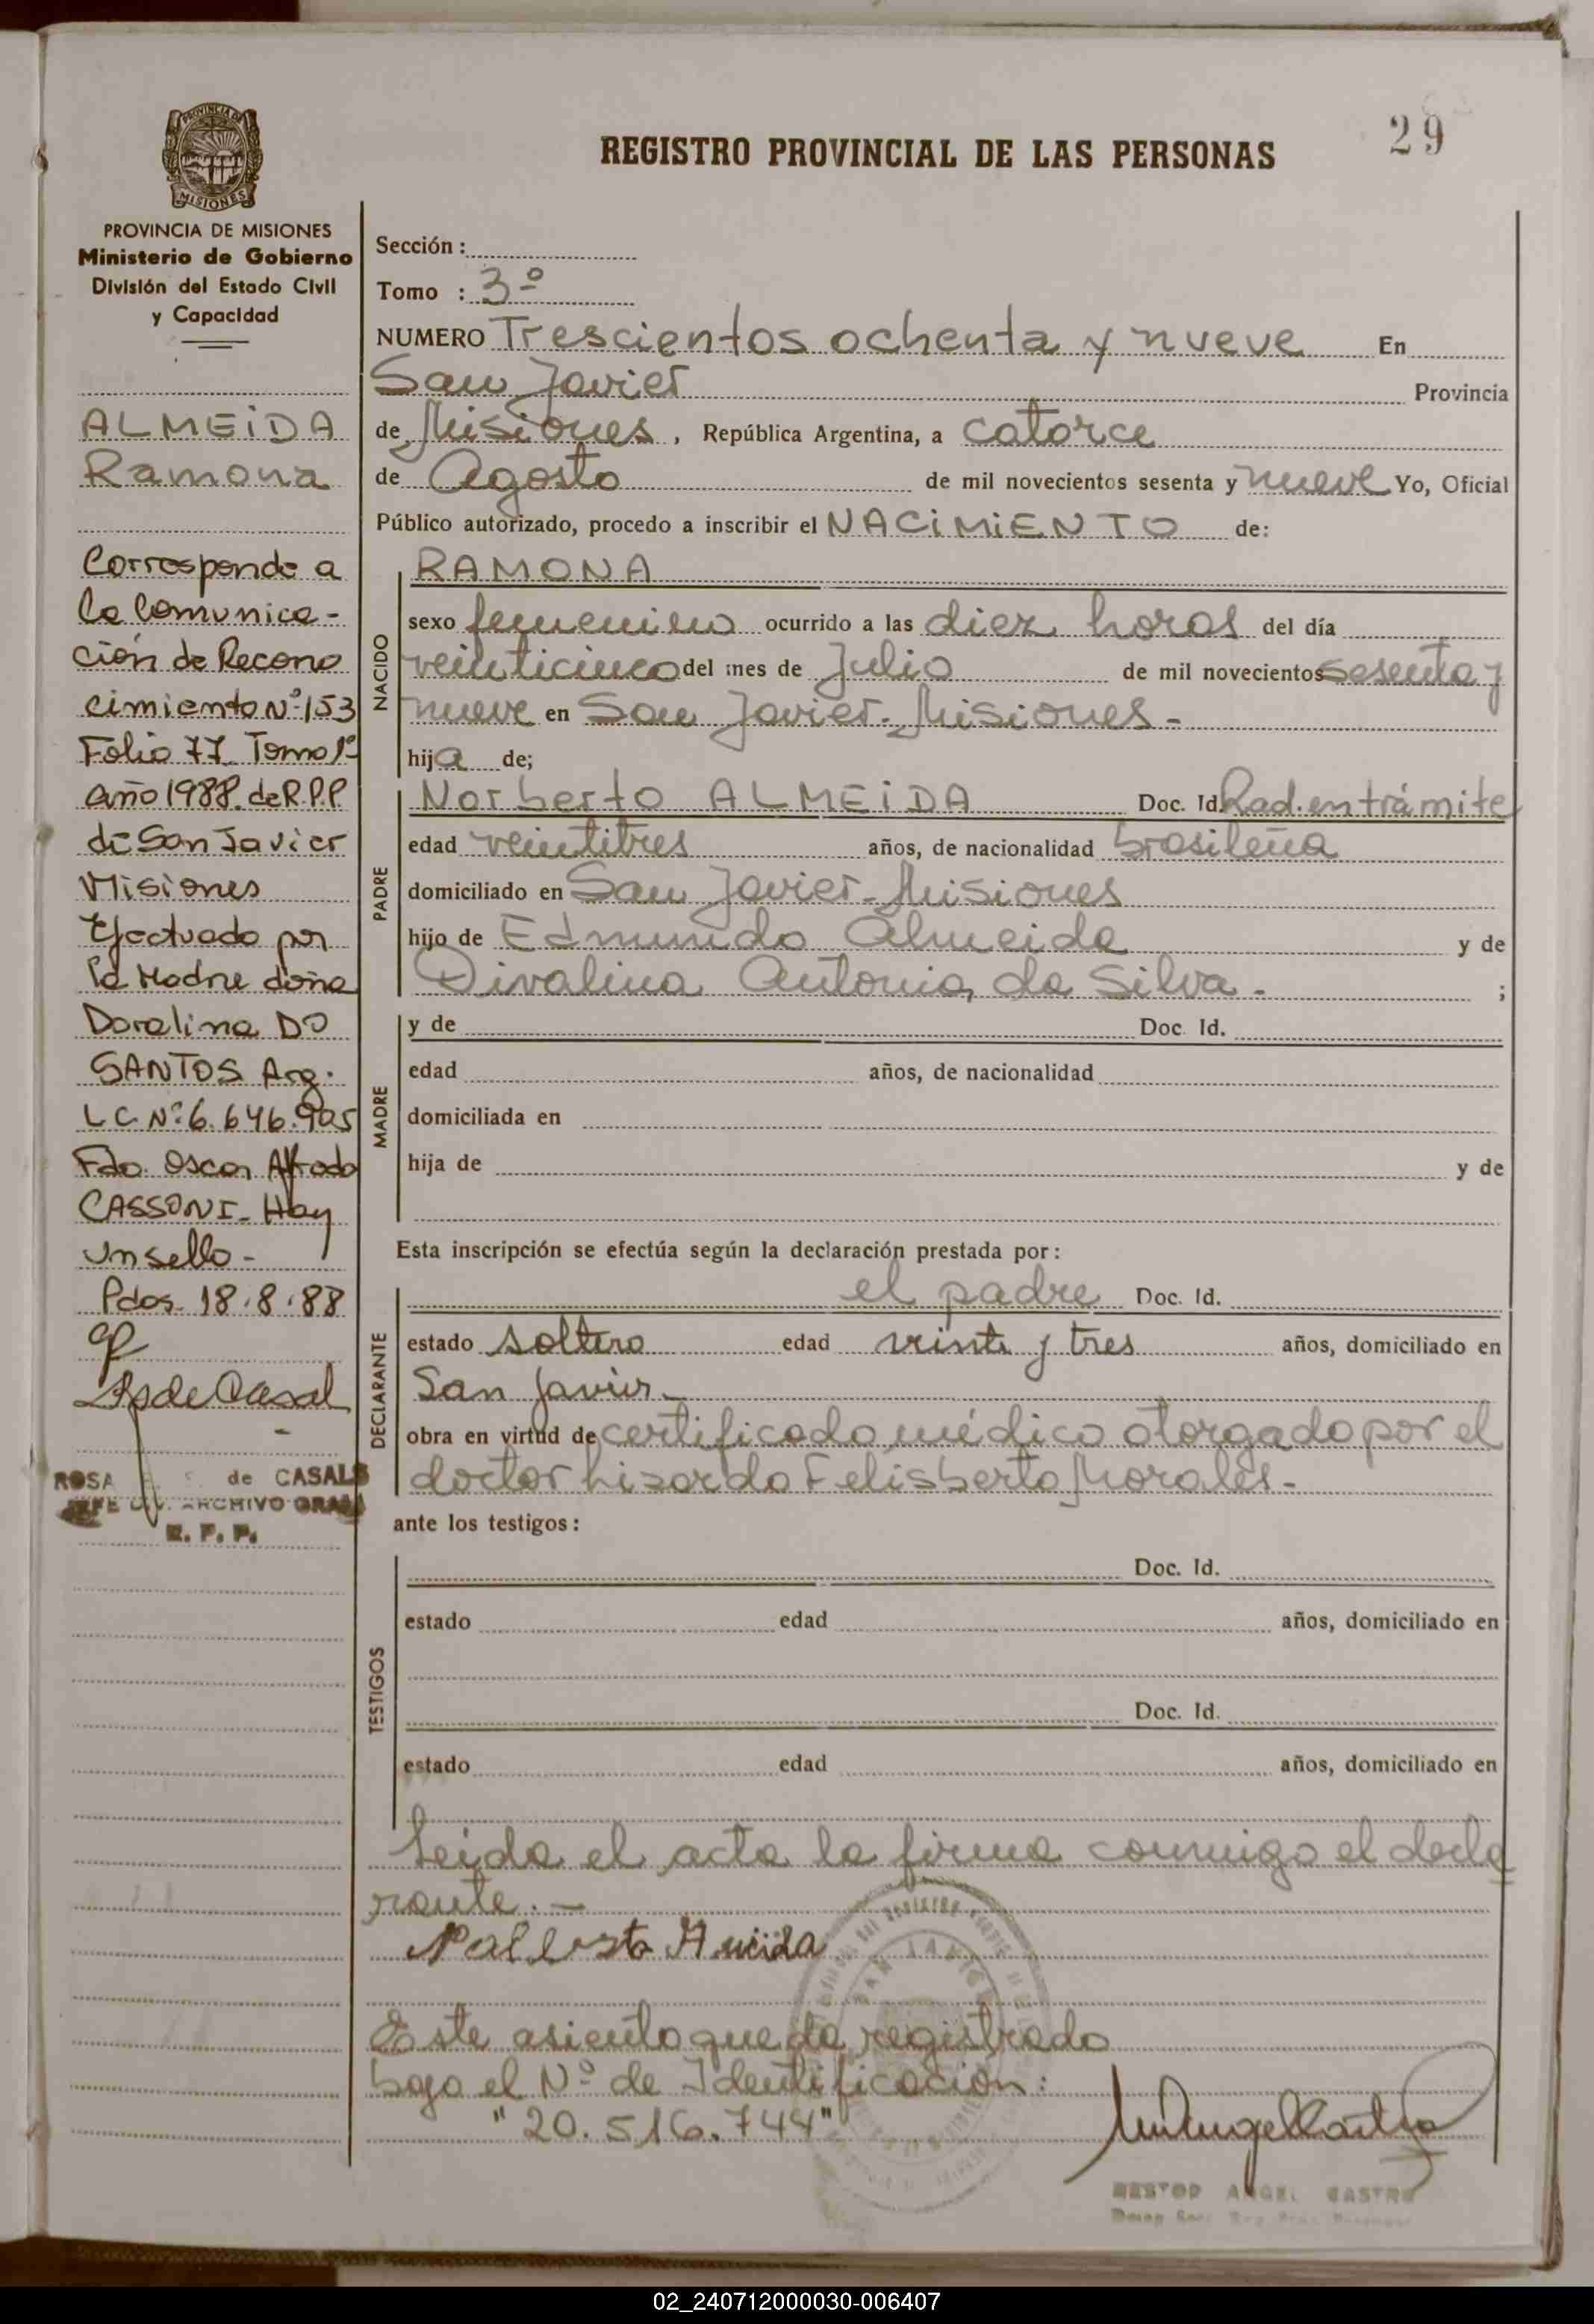 29
REGISTRO PROVINCIAL DE LAS PERSONAS
PROVINCIA DE
MISIONES
PROVINCIA DE MISIONES
Ministerio de Gobierno
División del Estado Civil
y Capacidad
ALMEiDA
Ramona
Corresponde a
la Comunica-
ción de Recono
cimiento Nº 153
Folio 77 Tomo 1º
año 1988. de R.P.P.
de San Javier
Misiones
Efectuado por
la Madre doña
Doralina DO
SANTOS Arg.
L C. Nº 6.646.905
Fdo. Oscar Alfredo
CASSONI- Hay
un sello-
Pdas. 18.8.88
ROSA de CASALS
JEFE ARCHIVO GRAL
R. P. P.
Sección :
Tomo : 3º
NUMERO Trescientos ochenta y nueve En
San Javier Provincia
de Misiones, República Argentina, a catorce
de Agosto de mil novecientos sesenta y nueve Yo, Oficial
Público autorizado, procedo a inscribir el NACiMiENTO de:
NACIDO
RAMONA
sexo femenino ocurrido a las diez horas del día
veinticinco del mes de Julio de mil novecientos sesenta y
nueve en San Javier- Misiones-
hija de;
PADRE
Norberto ALMEiDA Doc. Id. Rad. en trámite
edad veintitres años, de nacionalidad brasileña
domiciliado en San Javier- Misiones
hijo de Edmundo Almeida y de
Divalina Antonia da Silva- ;
MADRE
y de Doc. Id.
edad años, de nacionalidad
domiciliada en
hija de y de
Esta inscripción se efectúa según la declaración prestada por:
DECLARANTE
el padre Doc. Id.
estado soltero edad veinte y tres años, domiciliado en
San Javier-
obra en virtud de certificado médico otorgado por el
doctor Lisardo Felisberto Morales-
ante los testigos:
TESTIGOS
Doc. Id.
estado edad años, domiciliado en
Doc. Id.
estado edad años, domiciliado en
Leida el acta la firma conmigo el decla
rante.-
Este asiento queda registrado
bajo el Nº de Identificación:
"20.516.744"
NESTOR ANGEL CASTRO
02_240712000030-006407